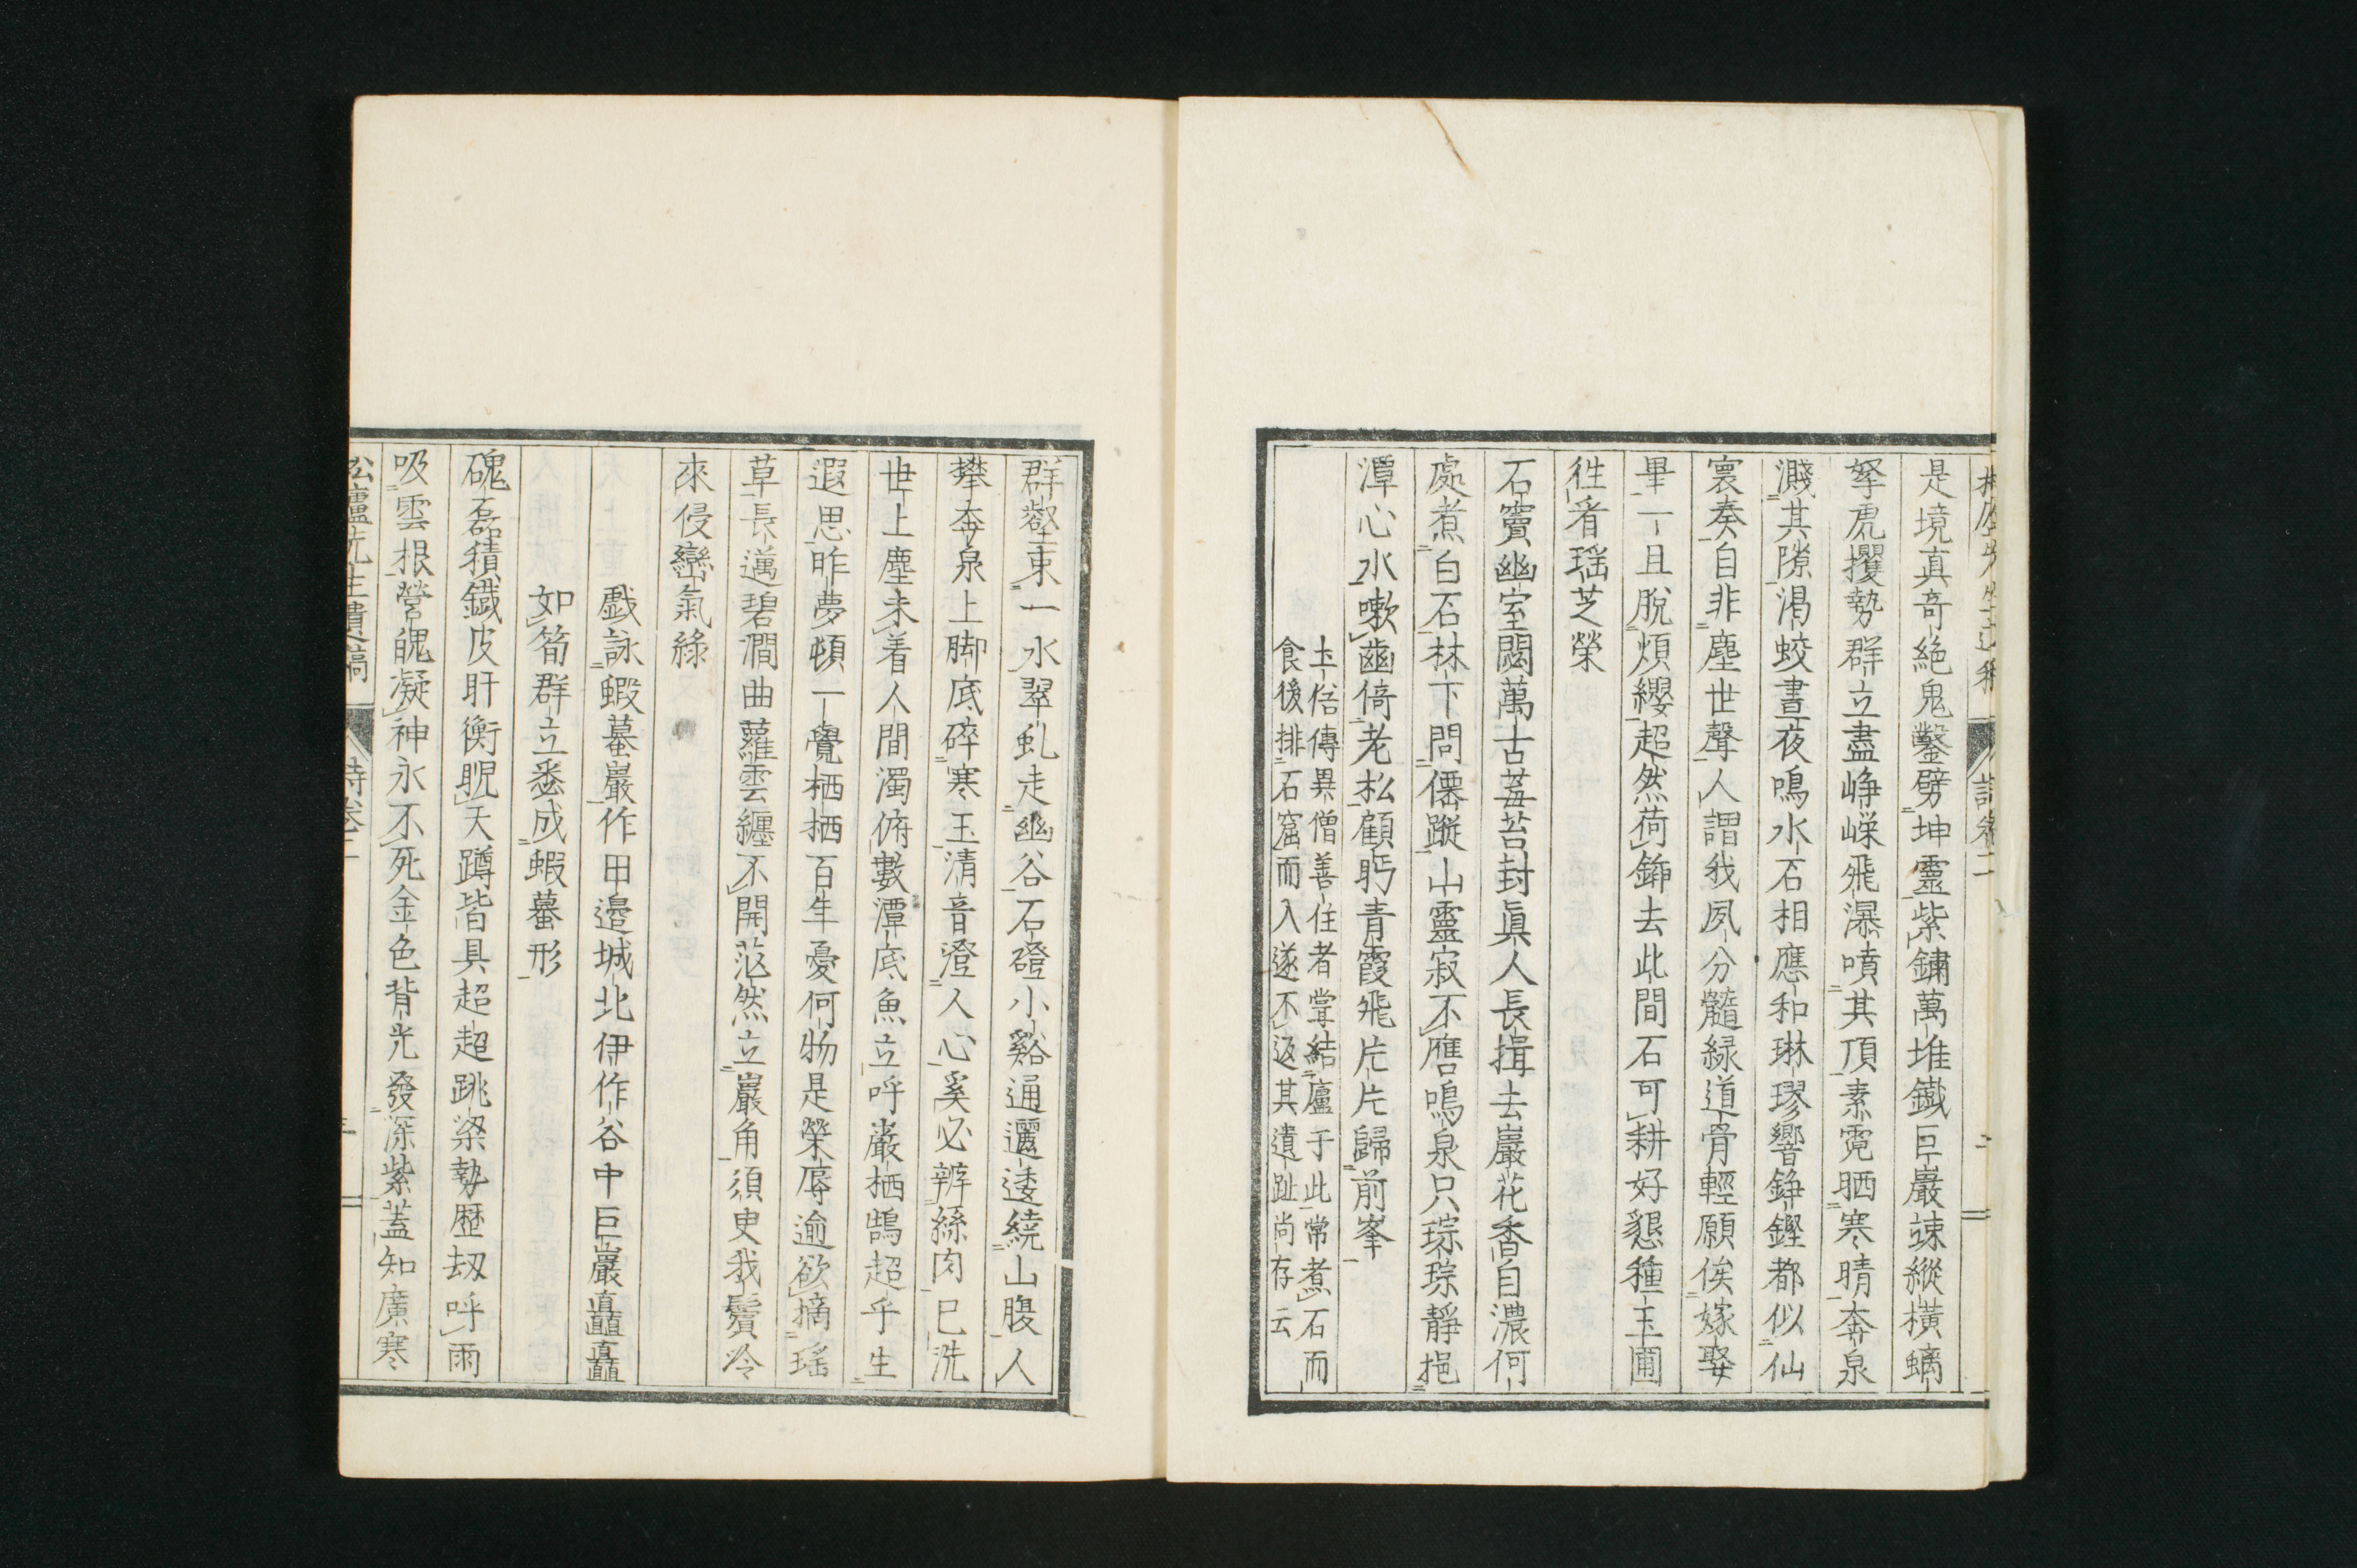 是境真奇絶鬼鑿劈坤靈紫鏽萬堆鐵巨巖竦縱橫螭
拏虎攫勢群立盡崢嶸飛瀑噴其頂素霓晒寒晴奔泉
濺其隙渴蛟晝夜鳴水石相應和琳璆響錚鏗都似仙
寰奏自非塵世聲人謂我夙分髓緑道骨輕願俟嫁娶
畢一且脫煩纓超然荷鍤去此間石可耕好懇種玉圃
徃看瑶芝榮
石竇幽室閟萬古蒼苔封眞人長揖去巖花香自濃何
處煮白石林下問僊蹤山靈寂不應鳴泉只琮琮靜挹
潭心水嗽齒倚老松顧眄青霞飛片片歸前峯
土俗傳異僧善住者嘗結廬于此常煮石而
食後排石窟而入遂不返其遺趾尚存云
詩卷二
群壑東一水翠虬走幽谷石磴小谿通邐逶繞山腹人
攀奔泉上脚底碎寒玉清音澄人心奚必辨絲肉已洗
世上塵未着人間濁俯數潭底魚立呼巖栖鵠超乎生
遐思昨夢頓一覺栖栖百年憂何物是榮辱逾欲摘瑶
草長邁碧澗曲蘿雲纏不開茫然立巖角須臾我鬢冷
來侵巒氣綠
戯詠蝦蟇巖作田邉城北伊作谷中巨巖矗矗
如筍群立悉成蝦蟇形
磈磊積鐵皮肝衡睨天蹲皆具超超跳梁勢歴刼呼雨
吸雲根營魄凝神永不死金色背光發深紫蓋知廣寒
松廬先生遺稿
詩卷二